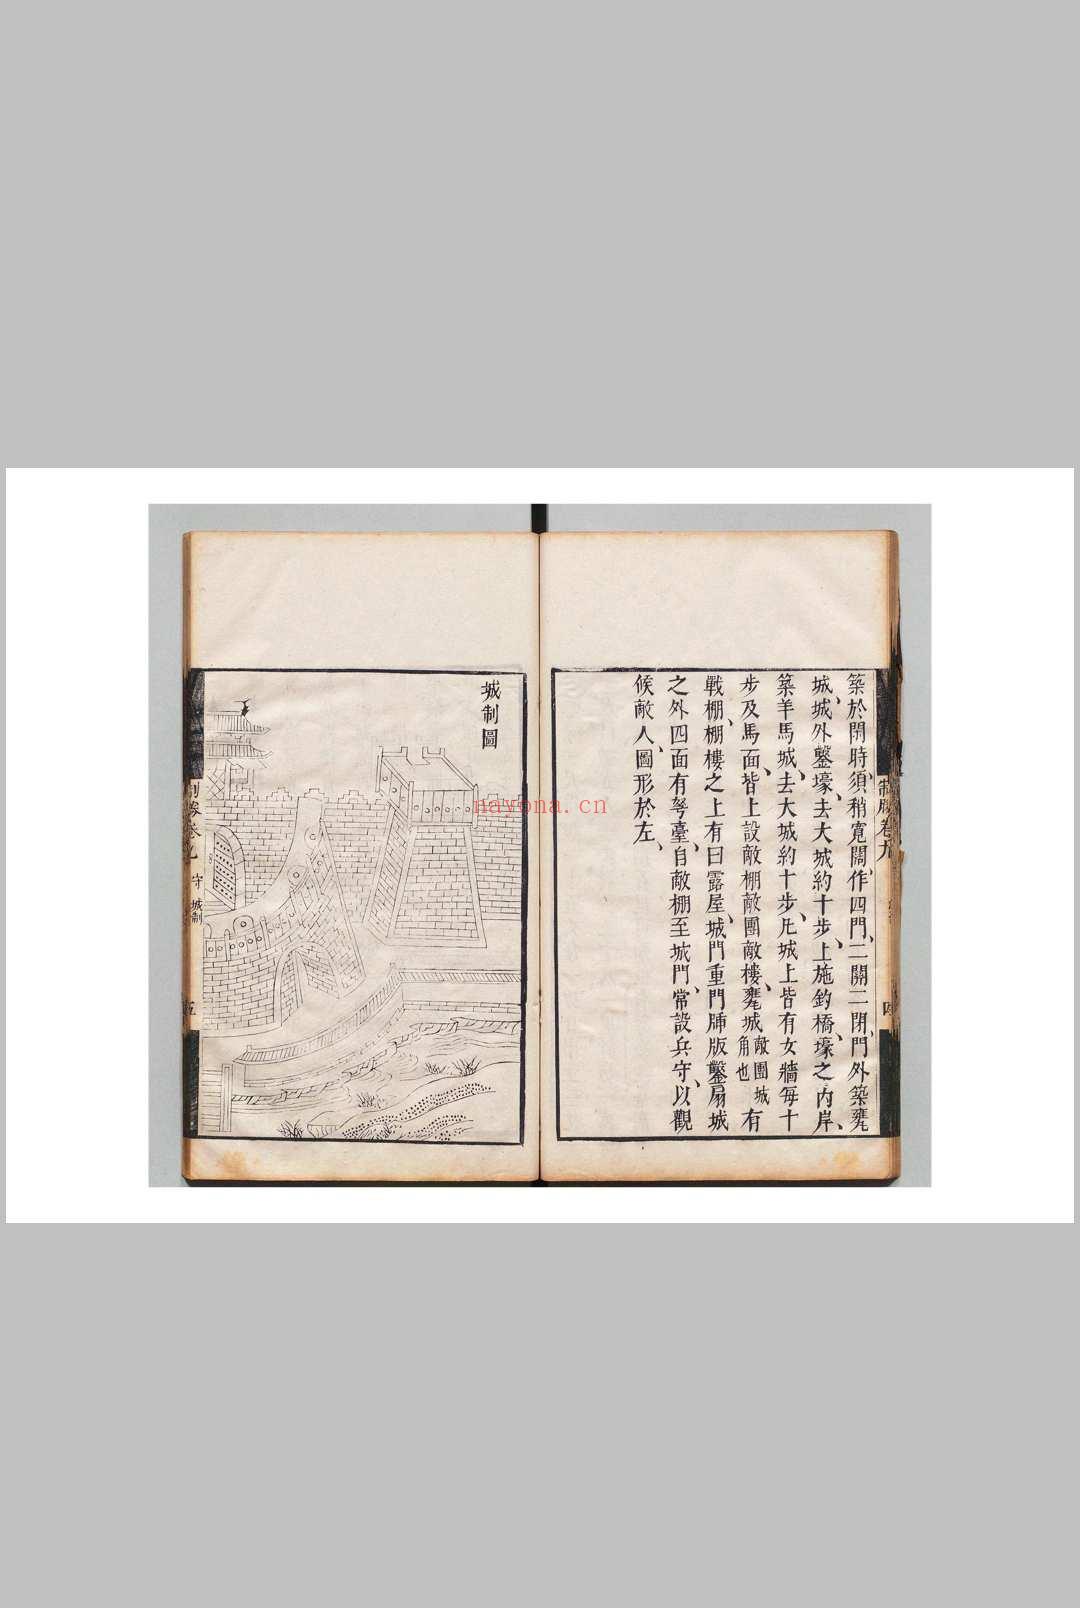 築於閑時、須稍寬闊、作四門、二開二閉、門外築甕
城、城外鑿壕、去大城約十步、上施釣橋、壕之內岸、
築羊馬城、去大城約十步、凡城上皆有女牆每十
步及馬面、皆上設敵棚敵團敵樓、甕城敵團城角也有
戰棚、棚樓之上有曰露屋、城門重門㭠版鑿扇城
之外四面有弩臺、自敵棚至城門、常設兵守、以觀
候敵人、圖形於左、
制勝卷九
四
城制圖
制勝卷九 守 城制
五
nayona.cn